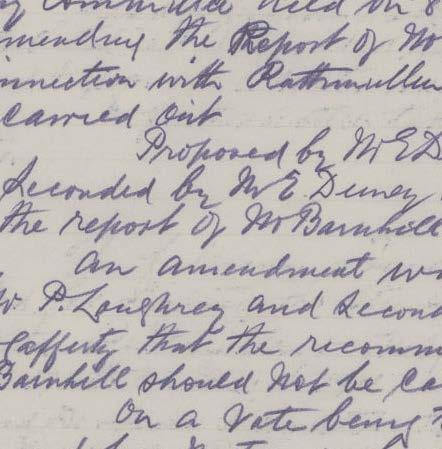 Committee held on 8
mending the Report of Mr
nnection with Rathmullen
carried out
Proposed by Mr E D
Seconded by Mr E. Deeney
the report of Mr Barnhill
An amendment w
P. Loughrey and Second
Cafferty that the recomm
Barnhill should not be ca
On a vote being